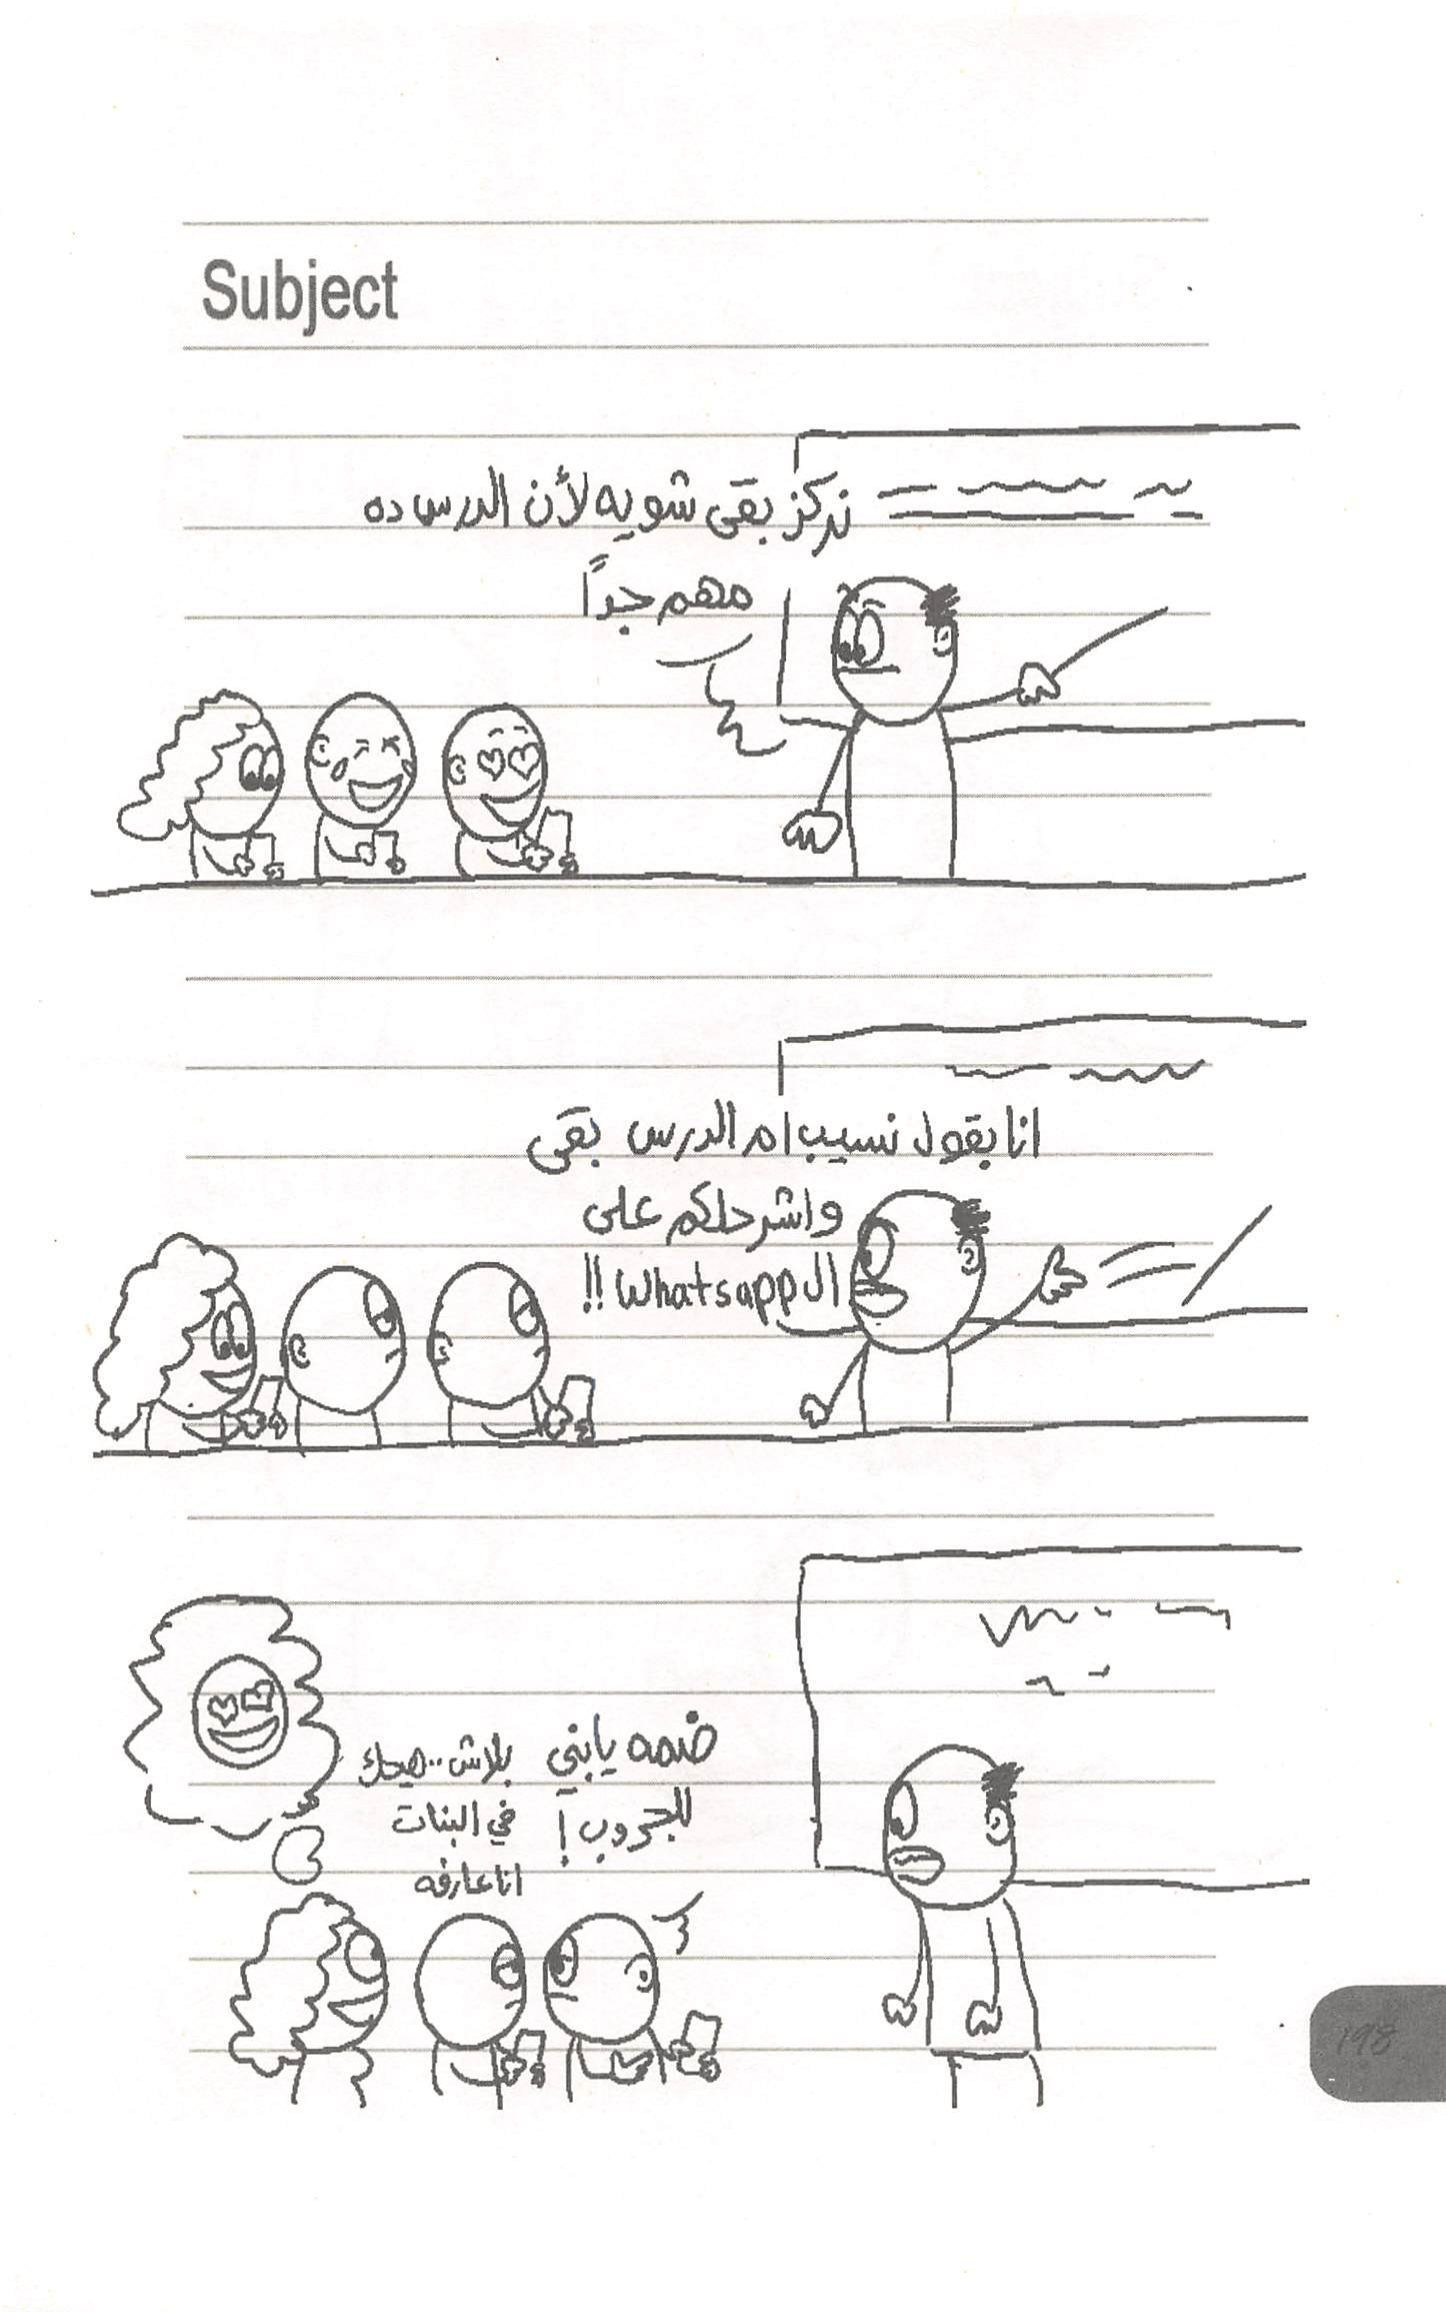 Subject
نركز بقى شويه لأن الدرس ده
مهم جداً
انا بقول نسيب ام الدرس بقى
واشرحلكم على
ال Whatsapp !!
ضمه يابني
للجروب !
بلاش.. هيحك
في البنات
انا عارفه
198